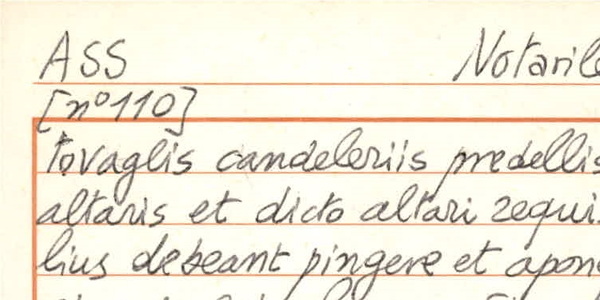 ASS Notarile
[n° 110]
tovaglis candeleriis predellis
altaris et dicto altari requi
lius debeant pingere et apon